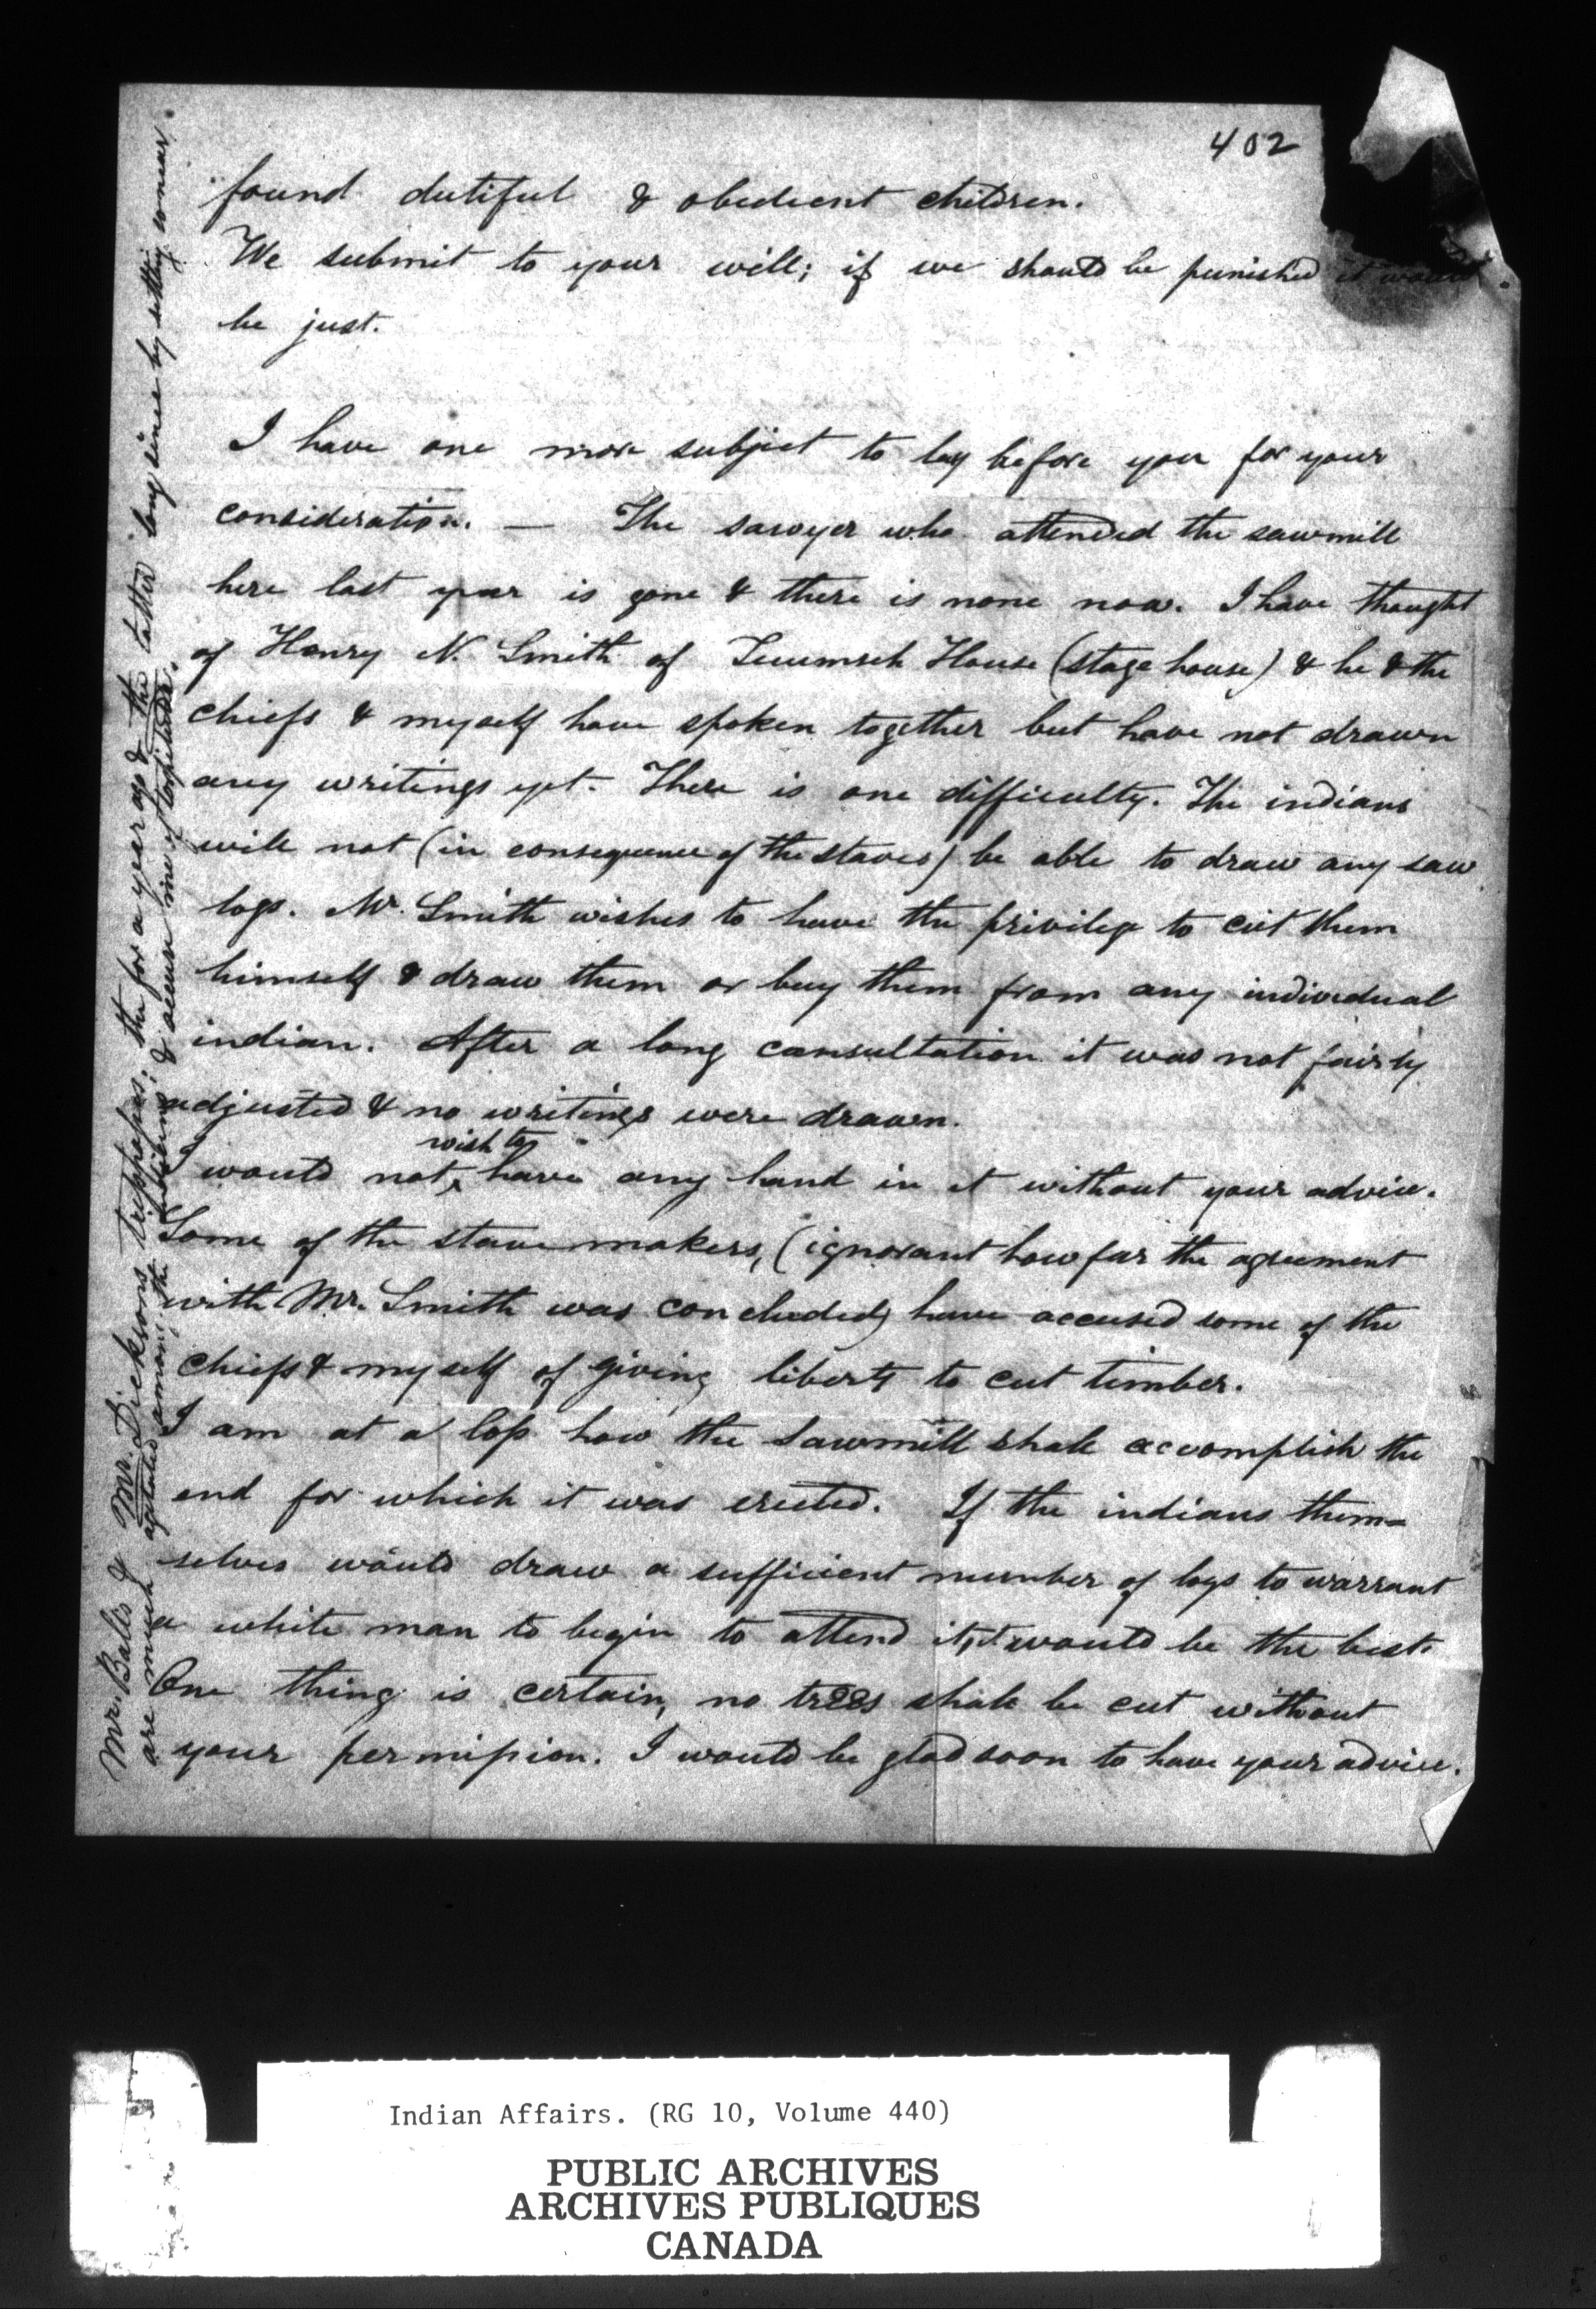 402
found dutiful & obedient children.
We submit to your will; if we should be punished it would
be just.
I have one more subject to lay before you for your
consideration. — The sawyer who attended the sawmill
here last year is gone & there is none now. I have thought
of Henry N. Smith of Tecumseh House (stage house) & he & the
chiefs & myself have spoken together but have not drawn
any writings yet. There is one difficulty. The indians
will not (in consequence of the staves) be able to draw any saw
logs. Mr. Smith wishes to have the privilege to cut them
himself & draw them or buy them from any individual
indian. After a long consultation it was not fairly
adjusted & no writings were drawn.
wish to
I would not ^ have any hand in it without your advice.
Some of the stave makers, (ignorant how far the agreement
with Mr. Smith was concluded) have accused some of the
chiefs & myself of giving liberty to cut timber.
I am at a loss how the sawmill shall accomplish the
end for which it was erected. If the indians them=
selves would draw a sufficient number of logs to warrant
a white man to begin to attend it, it would be the best.
One thing is certain, no trees shall be cut without
your permission. I would be glad soon to have your advice.
Mr. Bates & Mr. Dicksons trespasses; the for a year ago & the latter long since by settling so near
are much agitated among the indians & accuse me of
Indian Affairs. (RG 10, Volume 440)
PUBLIC ARCHIVES
ARCHIVES PUBLIQUES
CANADA